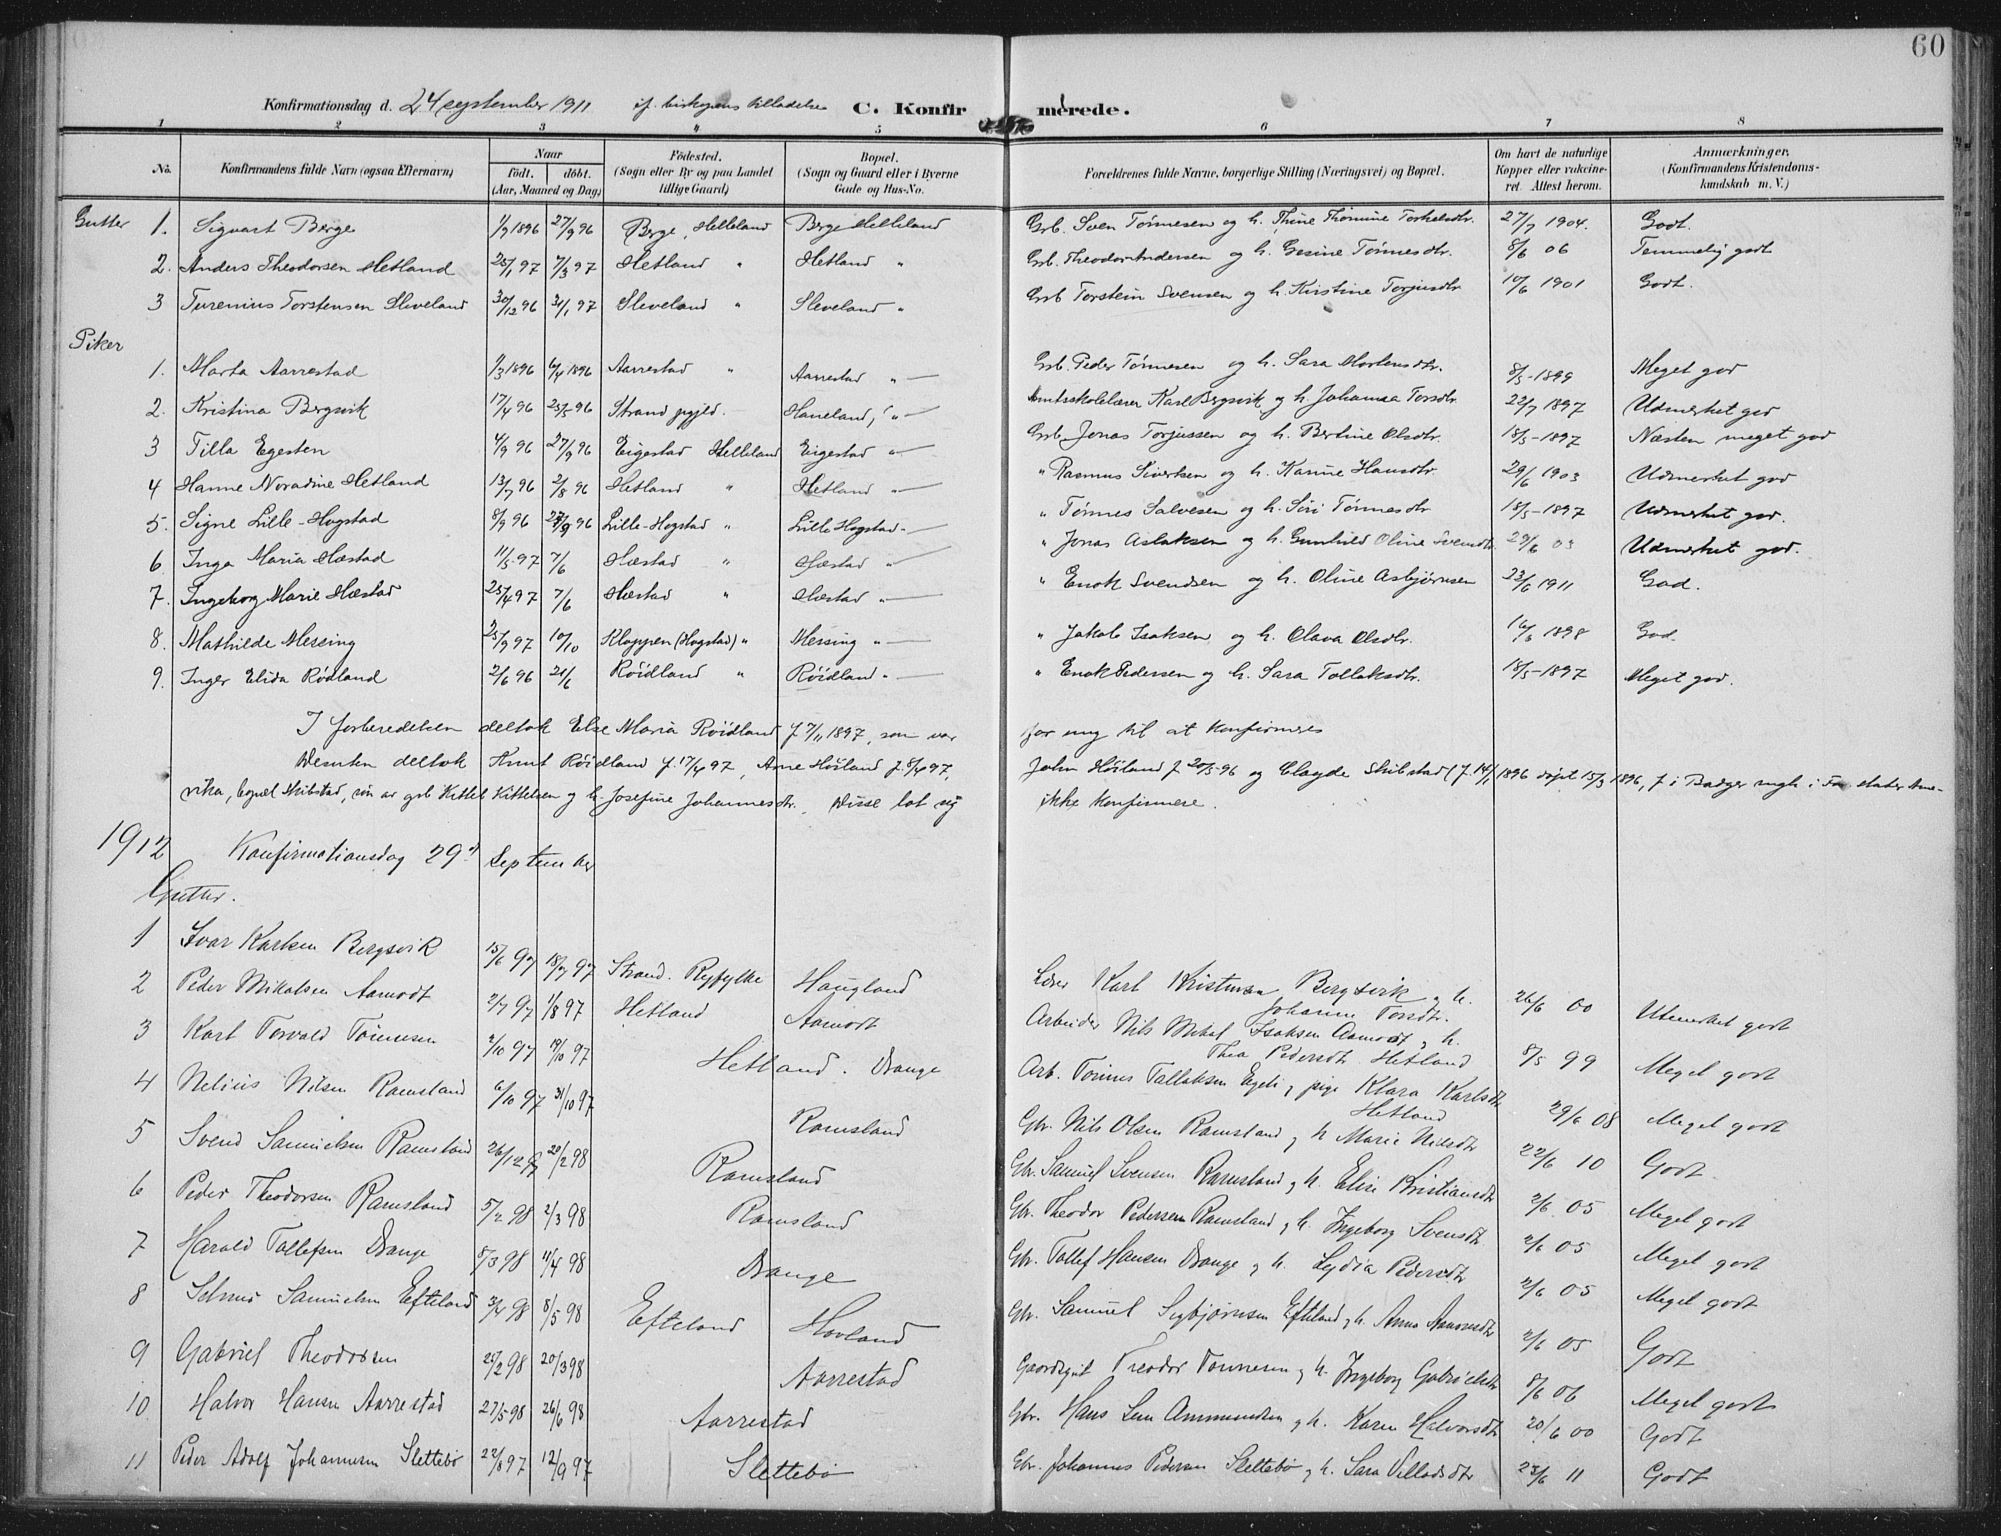 60
Konfirmationsdag d. 24 september 1911 if. biskopens tilladelse C. Konfirmerede.
1 2 3 4 5 6 7 8
No. Konfirmandens fulde Navn (ogsaa Efternavn) Naar født. døbt. (Aar, Maaned og Dag) Fødested. (Sogn eller By og paa Landet tillige Gaard) Bopæl. (Sogn og Gaard eller i Byerne Gade og Hus-No. Forældrenes fulde Navne, borgerlige Stilling (Næringsvei) og Bopæl. Om havt de naturlige Kopper eller vaccineret. Attest herom. Anmærkninger. (Konfirmandens Kristendomskundskab m. V.)
Gutter 1. Sigvart Berge 1/9 1896 27/9 96 Berge, Helleland Berge Helleland Grb. Sven Tønnesen og h. Thine Thomine Torkelsdtr. 27/7 1904. Godt.
2. Anders Theodorsen Hetland 25/1 97 7/3 97 Hetland " Hetland " Grb. Theodor Andersen og h. Gesine Tønnesdtr. 8/6 06 Temmelig godt
3 Turenius Torstensen Sleveland 30/12 96 31/1 97 Sleveland " Sleveland " Grb Torstein Svensen og h. Kristine Torjusdtr 10/6 1901 Godt.
Piker
1. Marta Aarrestad 1/3 1896 6/4 1896 Aarrestad " Aarrestad " Grb. Peder Tønnesen og h. Sara Mortensdtr. 8/5-1899 Meget god
2. Kristina Bergsvik 17/4 96 25/5 96 Strand pgjeld. Haneland, " Amtsskolelærer Karl Bergsvik og h. Johanna Torsdtr 22/7 1897 Udmerket god
3 Tilla Egesten 4/9 96 27/9 96 Eigestad Helleland Eigestad " Grb. Jonas Torjussen og h. Bertine Olsdtr. 18/5-1897 Næsten meget god
4 Hanne Noradine Hetland 13/7 96 2/8 96 Hetland " Hetland " " Rasmus Sivertsen og h. Karine Hansdtr 29/6 1903 Udmerket god
5. Signe Lille-Hogstad 8/9 96 27/9 96 Lille-Hogstad " Lille Hogstad " " Tønnes Salvesen og h. Siri Tønnesdtr 18/5-1897 Udmerket god.
6. Inga Maria Hæstad 11/5 97 7/6 Hæstad " Hæstad " " Jonas Aslaksen og h. Gunhild Oline Svendtr. 29/6 03 Udmerket god.
7. Ingeborg Marie Hæstad 25/4 97 7/6 Hæstad " Hæstad " " Enok Svendsen og h. Oline Asbjørnsen 23/6 1911 God.
8. Mathilde Messing 25/9 97 10/10 Kloppen (Hogstad) " Messing " " Jakob Isaksen og h. Olava Olsdtr. 16/6 1898 God
9. Inger Elida Rødland 2/6 96 21/6 Røidland " Røidland " " Enok Pedersen og h. Sara Tollaksdtr. 18/5-1897 Meget god.
I forberedelsen deltok Else Maria Røidland f. 7/11 1897, som var for ung til at konfirmeres
Desuten deltok Knut Røidland f. 17/4 97, Arne Høiland f. 8/4 97, John Høiland f. 20/5-96 og Clayde Skibstad (f. 14/1 1896 døpt 15/3 1896, f i Badger i
rika, bopæl Skibstad, søn av grb Kittel Kittelsen og h. Josefine Johannesdtr. Disse lot sig ikke konfirmere.
1912 Konfirmationsdag 29de September
Gutter.
1 Ivar Karlsen Bergsvik 15/6 97 18/7 97 Strand. Ryfylke Haugland Lærer Karl Kristensen Bergsvik og h. Johanne Torsdtr. 26/6 00 Utmerket godt
2 Peder Mikalsen Aamodt 2/7 97 1/8 97 Hetland Aamodt Arbeider Nils Mikal Isaksen Aamodt og h. Thea Pedersdtr. Hetland 8/5 99 Meget godt
3 Karl Torvald Tønnesen 2/10 97 19/10 97 Hetland. Drange Arb. Tønnes Tallaksen Egeli og pige Klara Karlsdtr Hetland 29/6 08 Meget godt
4 Nelius Nilsen Ramsland 6/10 97 31/10 97 Ramsland Gbr. Nils Olsen Ramsland og h Marie Nilsdtr 22/6 10 Godt
5 Svend Samuelsen Ramsland 26/12 97 20/2 98 Ramsland Gbr. Samuel Svensen Ramsland og h. Elise Kristiansdtr 2/6 05 Meget godt
6 Peder Theodorsen Ramsland 5/2 98 2/3 98 Ramsland Gbr. Theodor Pedersen Ramsland og h. Ingeborg Svensdtr 2/6 05 Meget godt
7 Harald Tollefsen Drange 8/3 98 11/4 98 Drange Gbr. Tollef Hansen Drange og h. Lydia Pedersdtr 2/6 05 Meget godt
8 Selmer Samuelsen Efteland 3/4 98 8/5 98 Efteland Hovland Gbr. Samuel Sigbjørnsen Efteland og h. Anna Aanensdtr 2/6 05 Godt
9 Gabriel Theodorsen 25/2 98 20/3 98 Aarrestad Gaardsgut Theodor Tønnesen og h. Ingeborg Gabrielsdtr 8/6 06 Meget godt
10 Halvor Hansen Aarrestad 27/5 98 26/6 98 Aarrestad Gbr. Hans Ammundsen og h. Karen Halvorsdtr 20/6 00 Godt
11 Peder Adolf Johannesen Slettebø 22/8 97 12/9 97 Slettebø Gbr. Johannes Pedersen Slettebø og h. Sara Villadsdtr 23/6 11 Godt